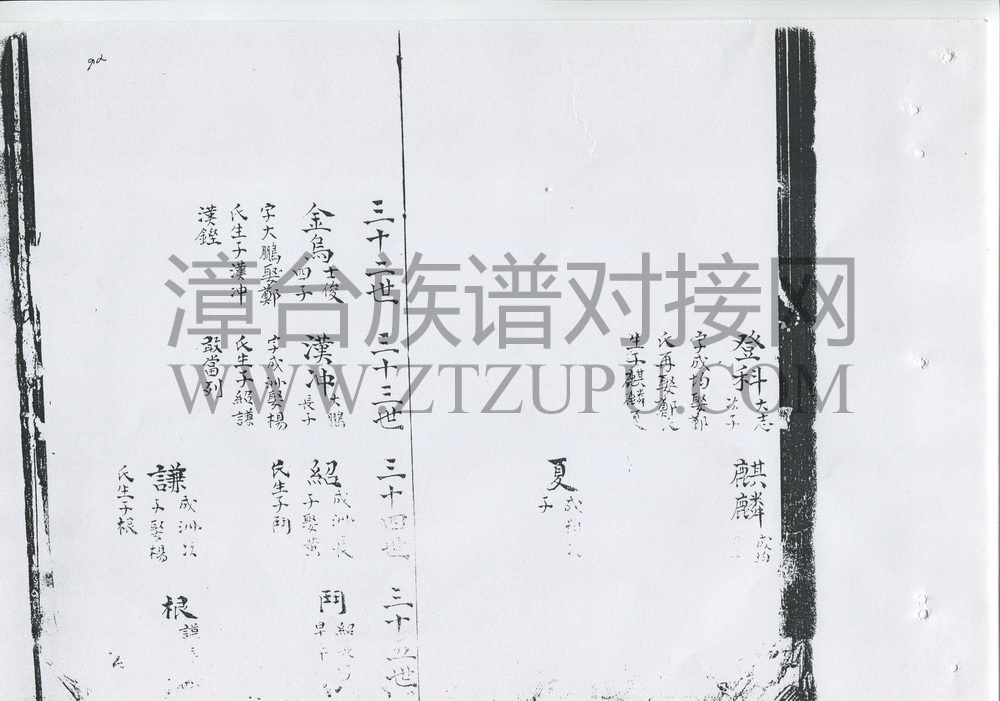 92
登科 大志次子
字成均娶鄭
氏再娶鄭氏
生子麒麟夏
麒麟 成均
夏 成均次
子
三十二世
金烏 士俊四子
字大鵬娶鄭
氏生子漢冲
漢鏗
三十三世
漢冲 大鵬長子
字成洲娶楊
氏生子紹謙
敢當列
三十四世
紹 成洲長子娶黃
氏生子鬥
謙 成洲次子娶楊
氏生子根
三十五世
鬥 紹
早
根 謙
漳台族谱对接网
WWW.ZTZUPU.COM